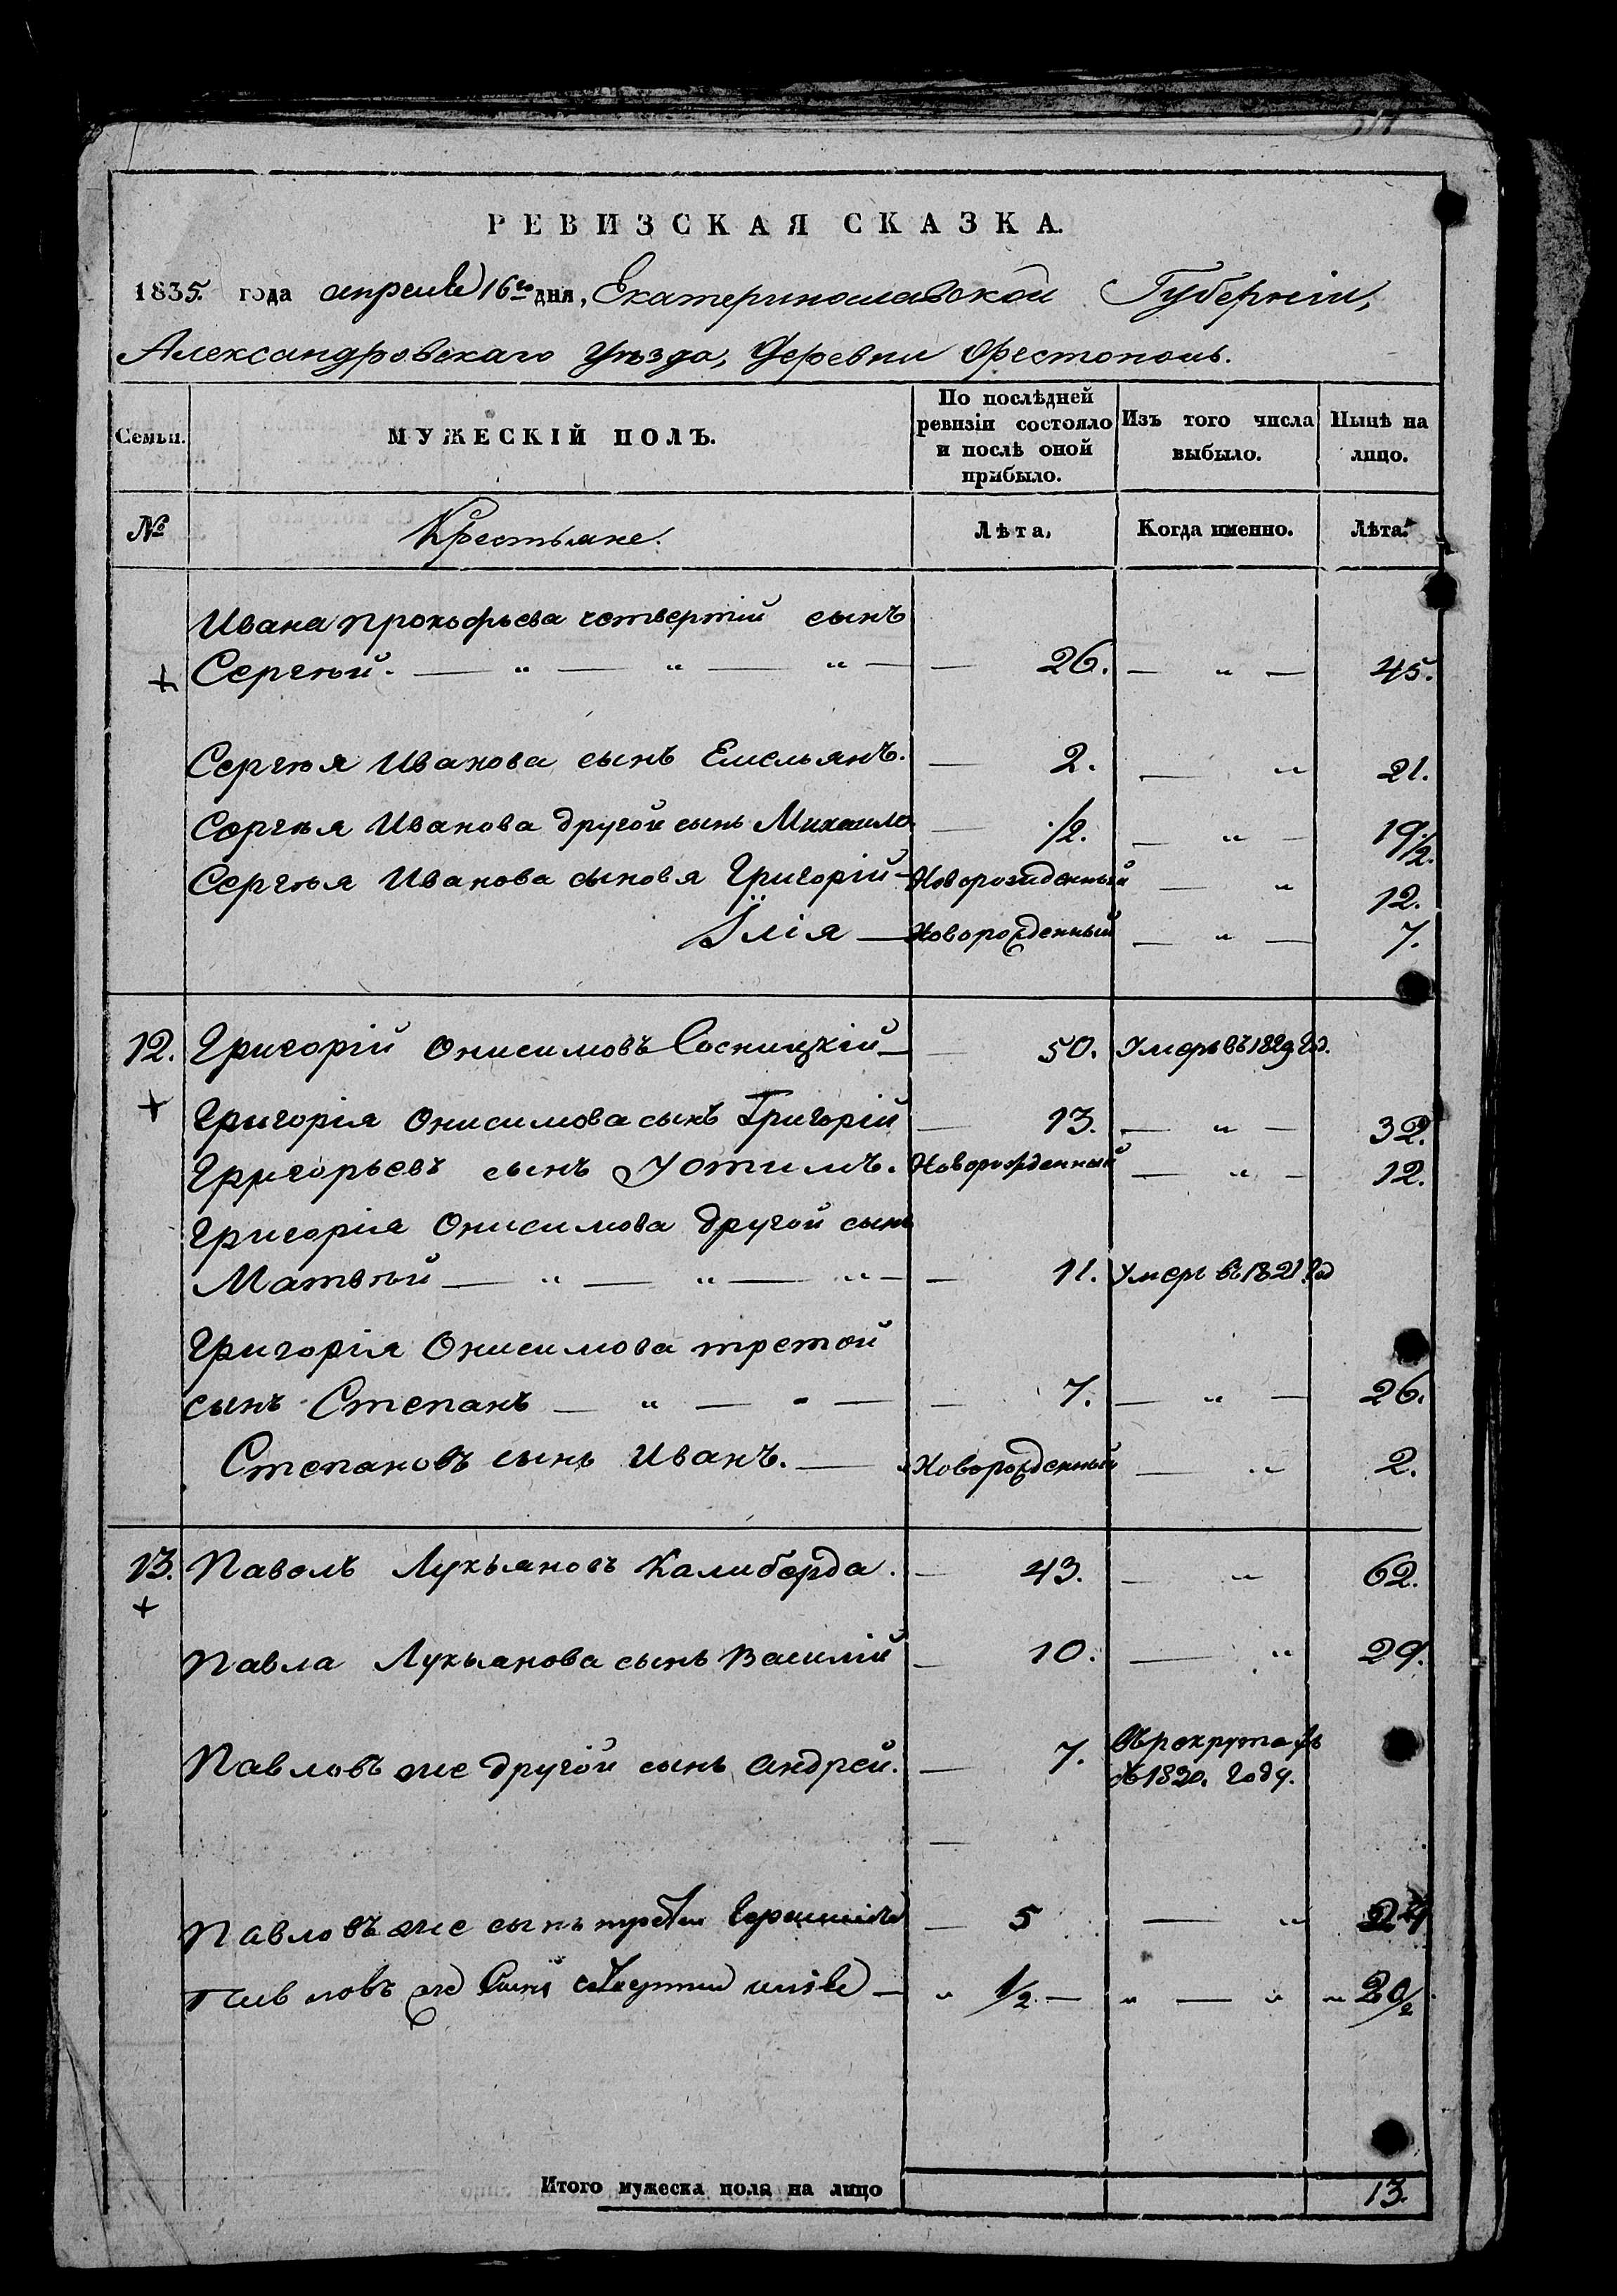 РЕВИЗСКАЯ СКАЗКА.
1835. года апреля 16го дня, Екатеринославской Губерніи,
Александровскаго Уѣзда, Деревни Орестополь.
Семьи.
МУЖЕСКІЙ ПОЛЪ.
По послѣдней ревизіи состояло и послѣ оной прибыло.
Изъ того числа выбыло.
Нынѣ на лицо.
№
Крестьяне.
Лѣта.
Когда именно.
Лѣта.
Ивана Прокофьева четвертій сынъ
+ Сергѣй. — „ — „ — „ — — 26. — „ — 45.
Сергѣя Иванова сынъ Емельянъ. — 2. — „ 21.
Сергѣя Иванова другой сынъ Михайло — 1/2. — „ — 19 1/2.
Сергѣя Иванова сыновя Григорій — Новорожденный — „ 12.
Ілія — Новорожденный — „ — 7.
12. Григорій Онисимовъ Сосницкій — — 50. Умеръ въ 1829 год.
+ Григорія Онисимова сынъ Григорій — 13. — „ — 32.
Григорьевъ сынъ Устимъ. Новорожденный — „ — 12.
Григорія Онисимова другой сынъ
Матвѣй — „ — „ — „ — — 11. Умеръ въ 1821 год
Григорія Онисимова третой
сынъ Степанъ — „ — „ — — 7. — „ — 26.
Степановъ сынъ Иванъ. — Новорожденный — „ 2.
13. Павелъ Лукьяновъ Калиберда. — 43. — „ 62.
+
Павла Лукьянова сынъ Василій — 10. — „ 29.
Павловъ же другой сынъ Андрей. — 7. Въ рекрутахъ
съ 1830. году.
Павловъ же сынъ третій — 5 — „ 24
Павловъ же сынъ — „ 1/2. — „ — „ „ 20 1/2
Итого мужеска пола на лицо 13.